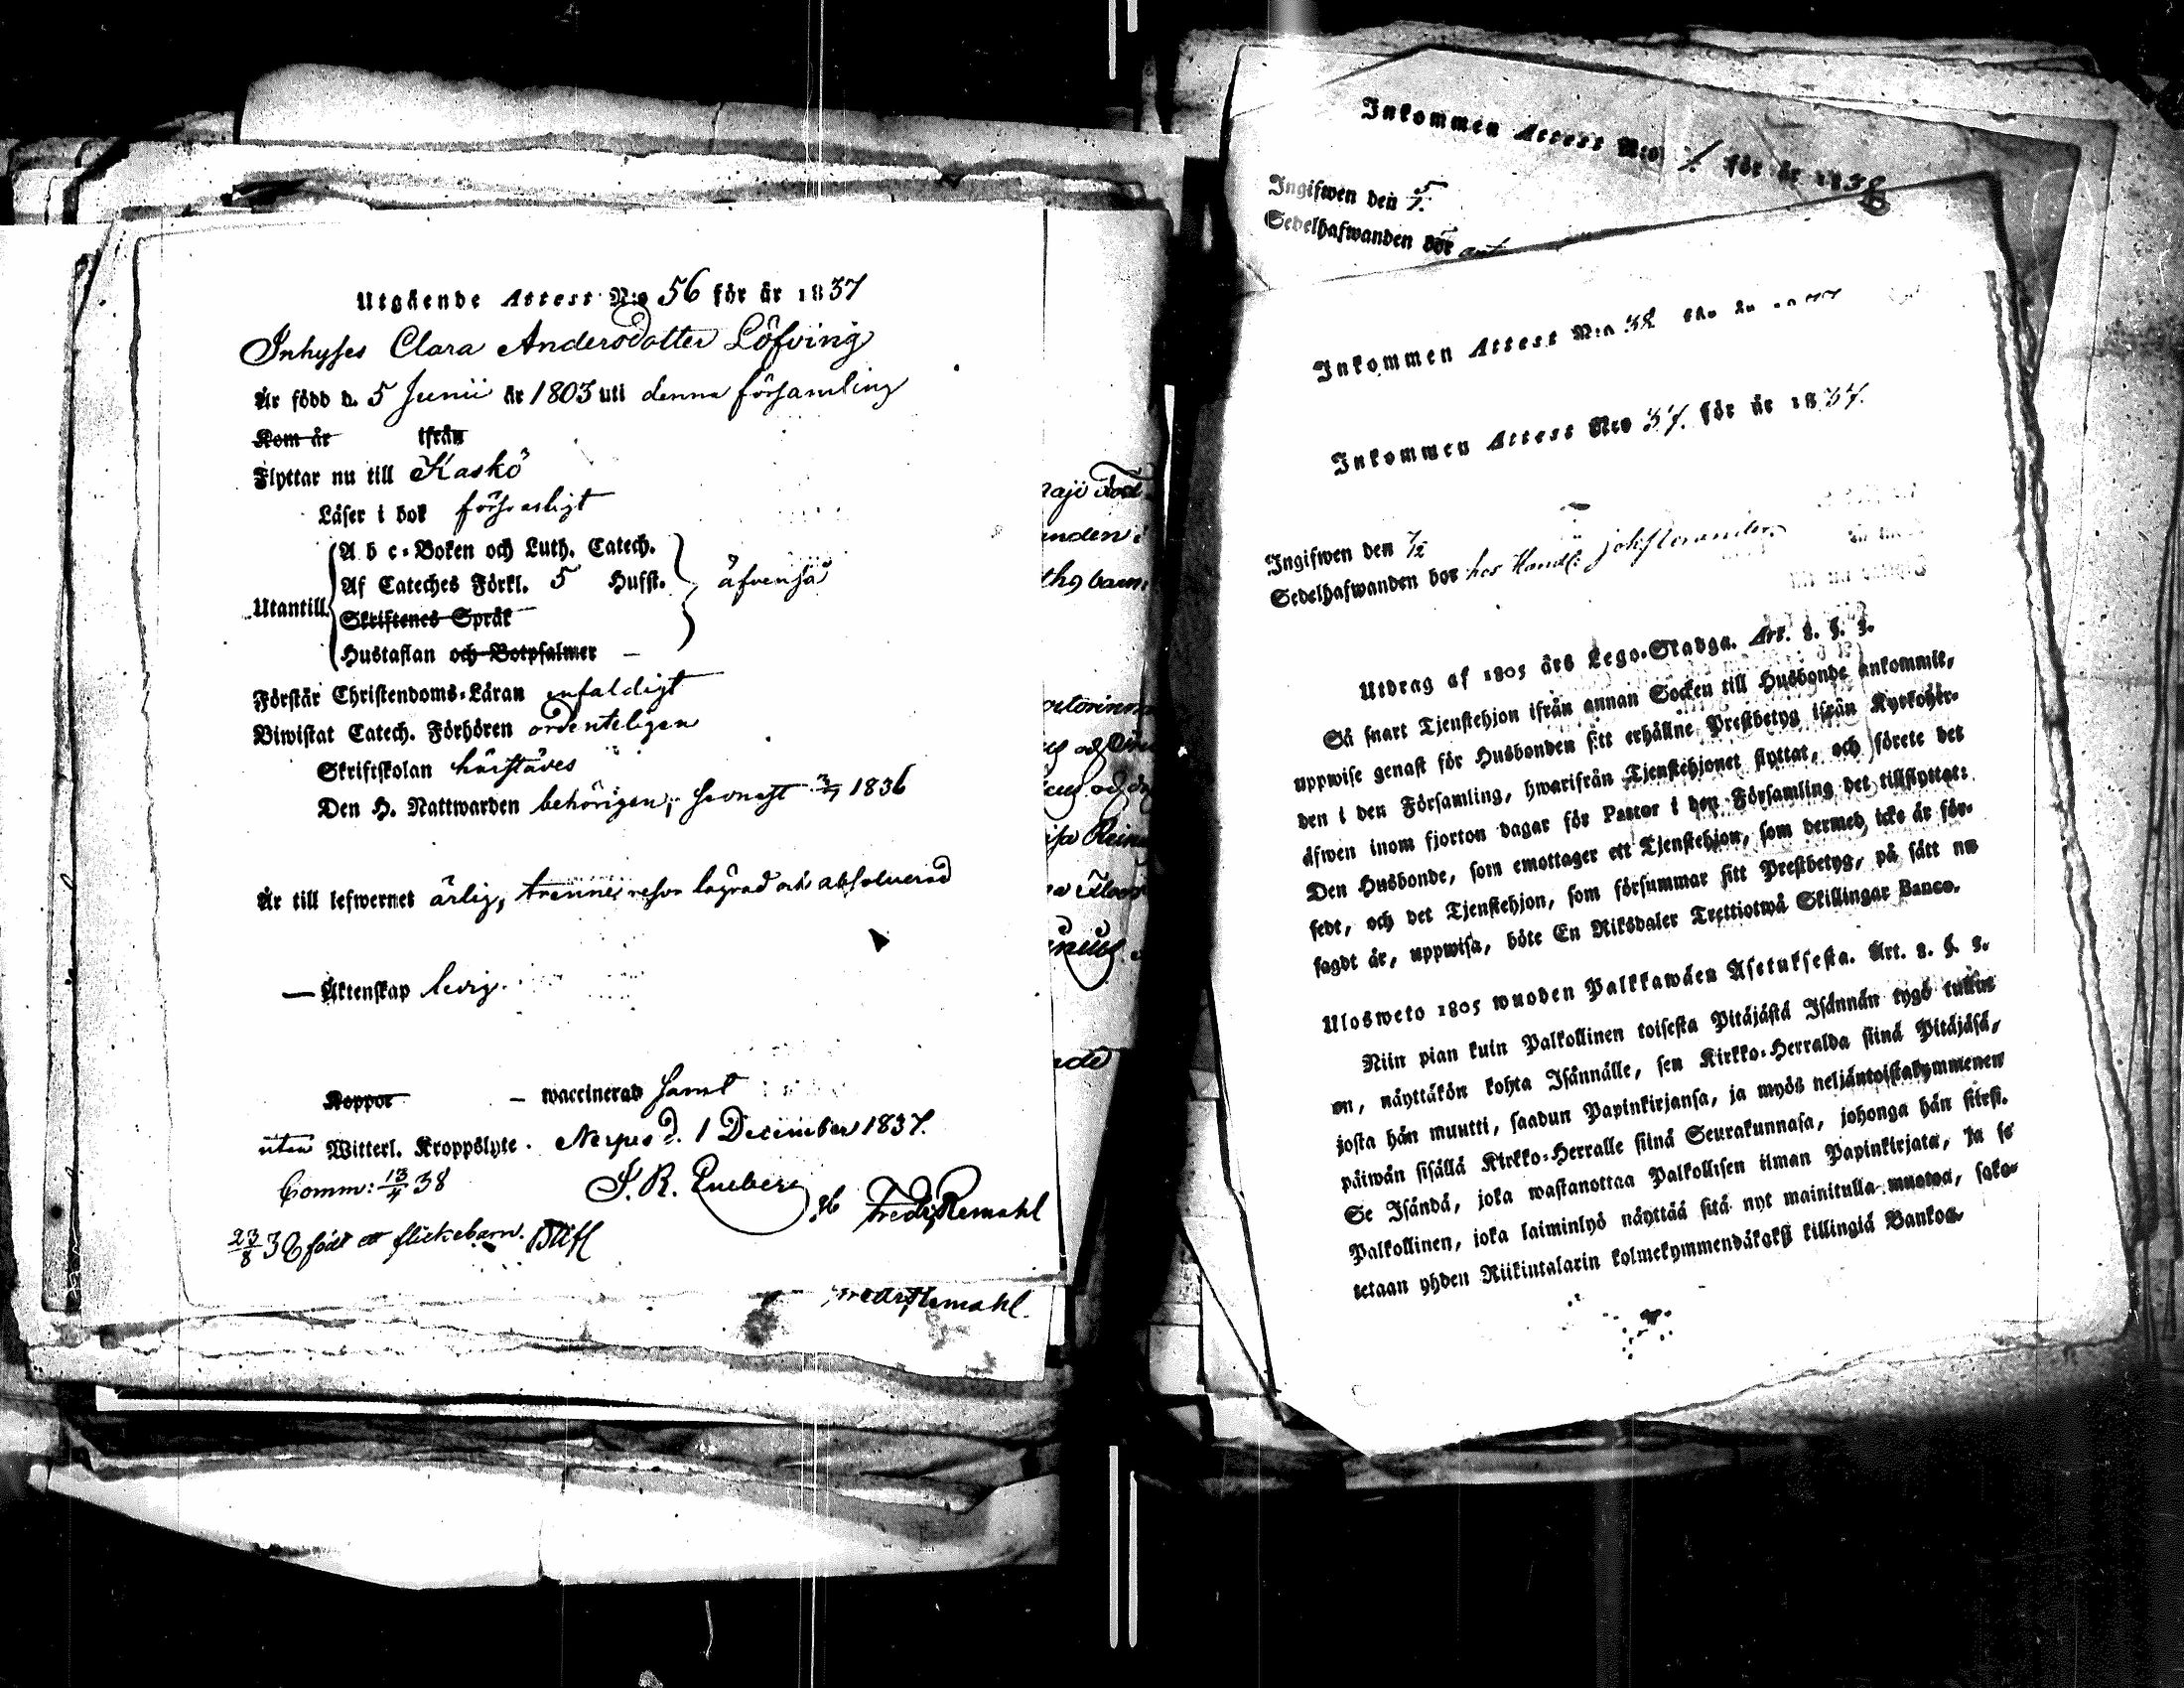 Utgående Attest N:o 56 för år 1837
Inhyses Clara Andersdotter Löfving
Är född d. 5 Junii år 1803 uti denna församling
Kom år ifrån
Flyttar nu till Kaskö
Läser i bok försvarligt
Utantill
A b c-Boken och Luth. Catech.
Af Cateches Förkl. 5 Hufst.
äfvenså
Skriftenes Språk
Hustaflan och Botpsalmer —
Förstår Christendoms-Läran enfaldigt
Biwistat Catech. Förhören ordenteligen
Skriftskolan härstädes
Den H. Nattwarden behörigen, senast 3/7 1836
Är till lefwernet ärlig, trenne resor lägrad och absolverad
— Äktenskap ledig.
Koppor — waccinerad samt
utan Witterl. Kroppslyte. Nerpes d. 1 December 1837.
Comm: 13/4 38
J. R. Fredr Remahl
23/8 38 födt ett flickebarn.
Remahl
Inkommen Attest N:o 1. för år 1838
Ingifwen den 5/1.
Sedelhafwanden bor
Inkommen Attest N:o 38
Inkommen Attest N:o 37. för år 1837.
Ingifwen den 7/12
Sedelhafwanden bor hos Handl:
Utdrag af 1805 års Lego-Stadga. Art. 8. §. 3.
Så snart Tjenstehjon ifrån annan Socken till Husbonde ankommit,
uppwise genast för Husbonden sitt erhållne Prestbetyg ifrån Kyrkoher-
den i den Församling, hwarifrån Tjenstehjonet flyttat, och förete det
äfwen inom fjorton dagar för Pastor i den Församling det tillflyttat:
Den Husbonde, som emottager ett Tjenstehjon, som dermed icke är för-
sedt, och det Tjenstehjon, som försummar sitt Prestbetyg, på sätt nu
sagdt är, uppwisa, böte En Riksdaler Trettiotwå Skillingar Banco.
Ulosweto 1805 wuoden Palkkawäen Asetuksesta. Art. 8. §. 3.
Niin pian kuin Palkollinen toisesta Pitäjästä Isännän tygö tullut
on, näyttäkön kohta Isännälle, sen Kirkko-Herralda siinä Pitäjäsä,
josta hän muutti, saadun Papinkirjansa, ja myös neljäntoistakymmenen
päiwän sisällä Kirkko-Herralle siinä Seurakunnasa, johonga hän siirsi.
Se Isändä, joka wastanottaa Palkollisen ilman Papinkirjata, ja se
Palkollinen, joka laiminlyö näyttää sitä nyt mainitulla muotoa, sako-
tetaan yhden Riikintalarin kolmekymmendäkaksi killingiä Bankoa.